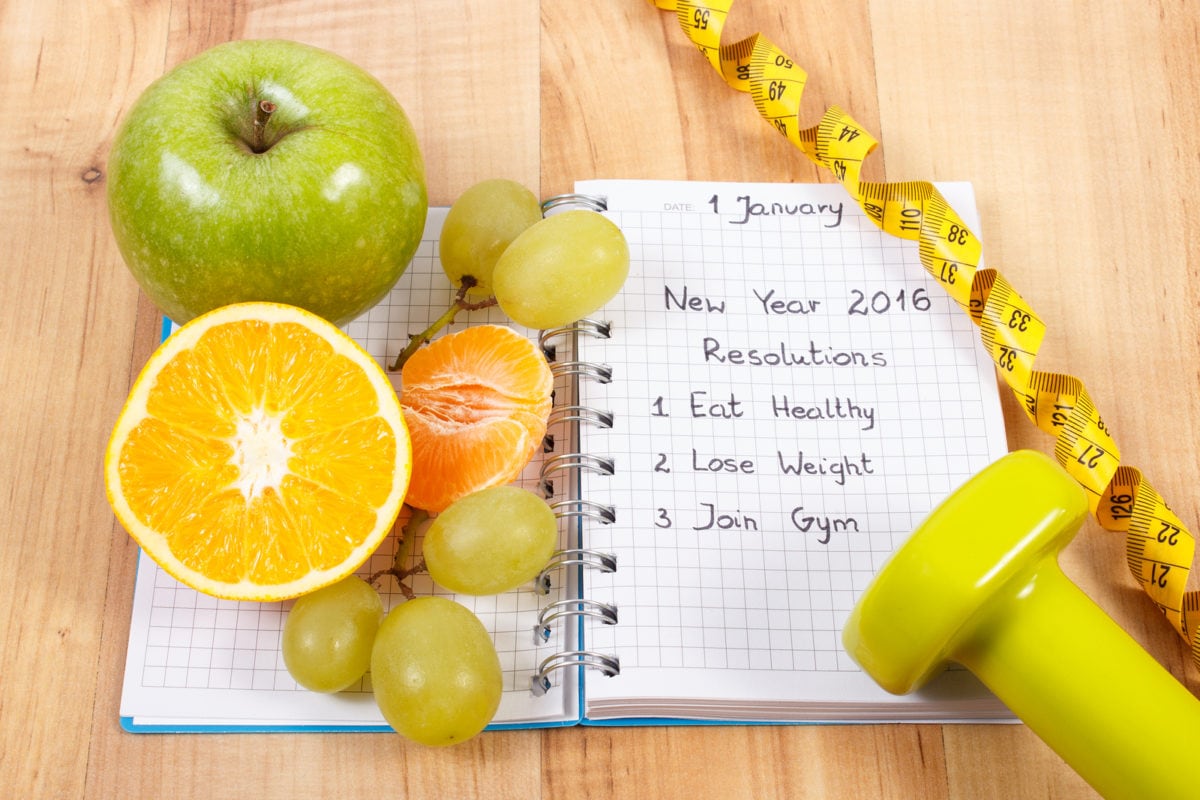 DATE: 1 January
New Year 2016
Resolutions
1 Eat Healthy
2 Lose Weight
3 Join Gym
55
50
49
44
45
109
110
38
37
33
32
121
27
126
22
21